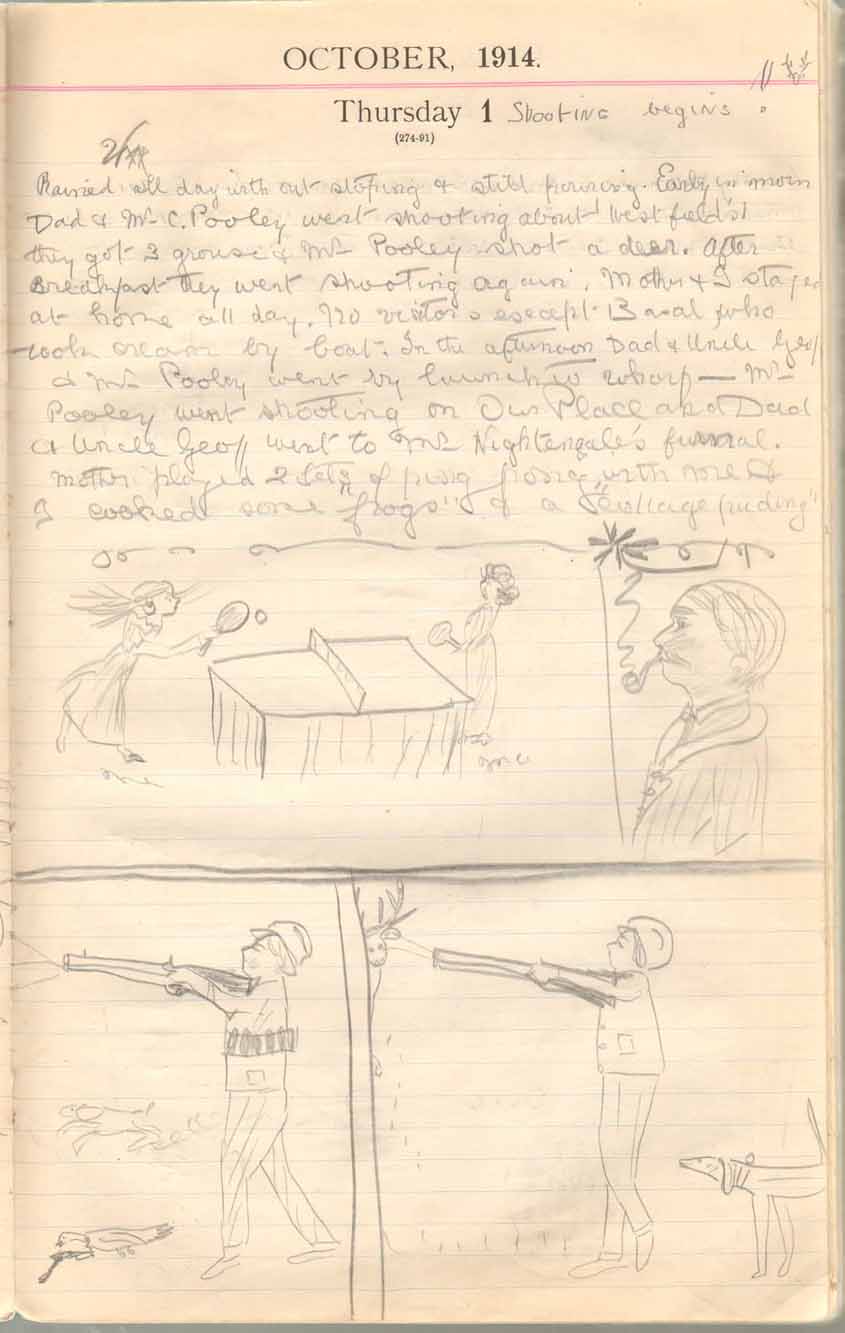 OCTOBER, 1914.
Thursday 1 Shooting begins.
(274-91)
Rained all day with out stoping & still pouring. Early in morn
Dad & Mr C. Pooley went shooting about West field's
they got 3 grouse & Mr Pooley shot a deer. After
Breakfast they went shooting again. Mother & I stayed
at home all day. No visitors esecept Basal who
took cream by boat. In the afternoon Dad & Uncle Geoff
& Mr Pooley went by launch to wharf — Mr
Pooley went shooting on Our Place and Dad
& Uncle Geoff went to Mr Nightengale's funral.
Mother played 2 sets of ping pong with me &
I cooked some "frogs" & a puding"
me